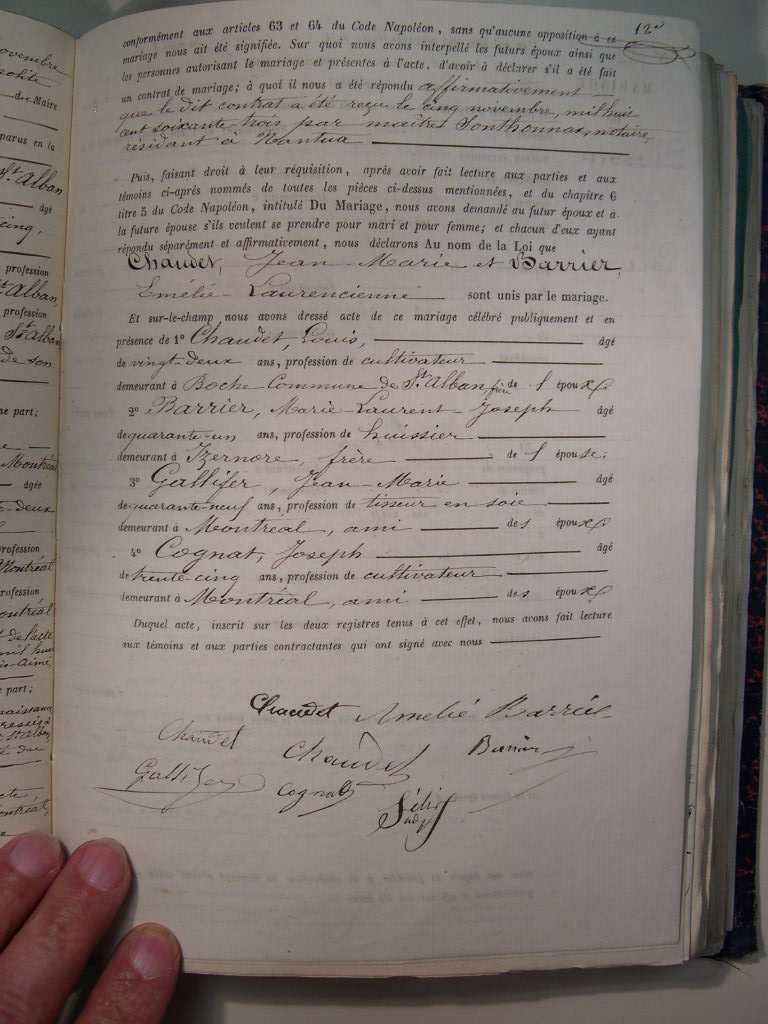 12e
conformément aux articles 63 et 64 du Code Napoléon, sans qu'aucune opposition à ce
mariage nous ait été signifiée. Sur quoi nous avons interpellé les futurs époux ainsi que
les personnes autorisant le mariage et présentes à l'acte, d'avoir à déclarer s'il a été fait
un contrat de mariage; à quoi il nous a été répondu affirmativement
que le dit contrat a été reçu le cinq novembre, mil huit
cent soixante trois par maître Sonthonnax, notaire,
résidant à Nantua
Puis, faisant droit à leur réquisition, après avoir fait lecture aux parties et aux
témoins ci-après nommés de toutes les pièces ci-dessus mentionnées, et du chapitre 6
titre 5 du Code Napoléon, intitulé Du Mariage, nous avons demandé au futur époux et à
la future épouse s'ils veulent se prendre pour mari et pour femme; et chacun d'eux ayant
répondu séparément et affirmativement, nous déclarons Au nom de la Loi que
Chaudet, Jean-Marie et Barrier,
Emélie-Laurencienne sont unis par le mariage.
Et sur-le-champ nous avons dressé acte de ce mariage célébré publiquement et en
présence de 1º Chaudet, Louis, âgé
de vingt-deux ans, profession de cultivateur
demeurant à Boche Commune de St Alban frère de l'époux
2º Barrier, Marie-Laurent-Joseph âgé
de quarante-un ans, profession de huissier
demeurant à Izernore, frère de l'épouse;
3º Gallifer, Jean-Marie âgé
de quarante-neuf ans, profession de tisseur en soie
demeurant à Montréal, ami des époux
4º Cognat, Joseph âgé
de trente-cinq ans, profession de cultivateur
demeurant à Montréal, ami des époux
Duquel acte, inscrit sur les deux registres tenus à cet effet, nous avons fait lecture
aux témoins et aux parties contractantes qui ont signé avec nous
Chaudet Amelié Barrier
Chaudet Chaudet Barrier
Gallifer Cognat